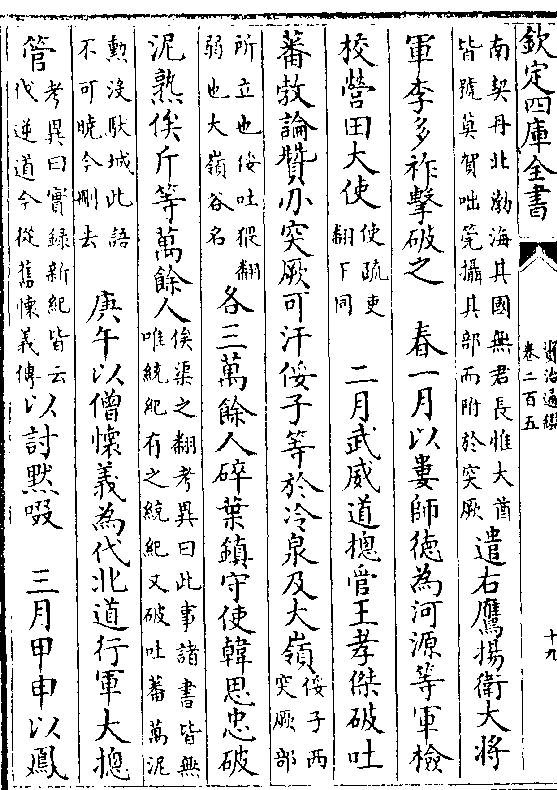 欽定四庫全書
資治通鑑
卷二百五
十九
南契丹北渤海其國無君長惟大酋
皆號莫賀咄笂攝其部而附於突厥
遣右鷹揚衛大將
軍李多祚擊破之　春一月以婁師德為河源等軍檢
校營田大使
使疏吏
翻下同
二月武威道總管王孝傑破吐
蕃敦論贊刅突厥可汗俀子等於冷泉及大嶺
俀子西
突厥部
所立也俀吐猥翻
弱也大嶺谷名
各三萬餘人碎葉鎮守使韓思忠破
泥熟俟斤等萬餘人
俟渠之翻考異曰此事諸書皆無
唯統紀有之統紀又破吐蕃萬泥
勲沒馱城此語
不可曉今刪去
庚午以僧懷義為代北道行軍大總
管
考異曰實録新紀皆云
代逆道今從舊懷義傳
以討黙啜　三月甲申以鳳